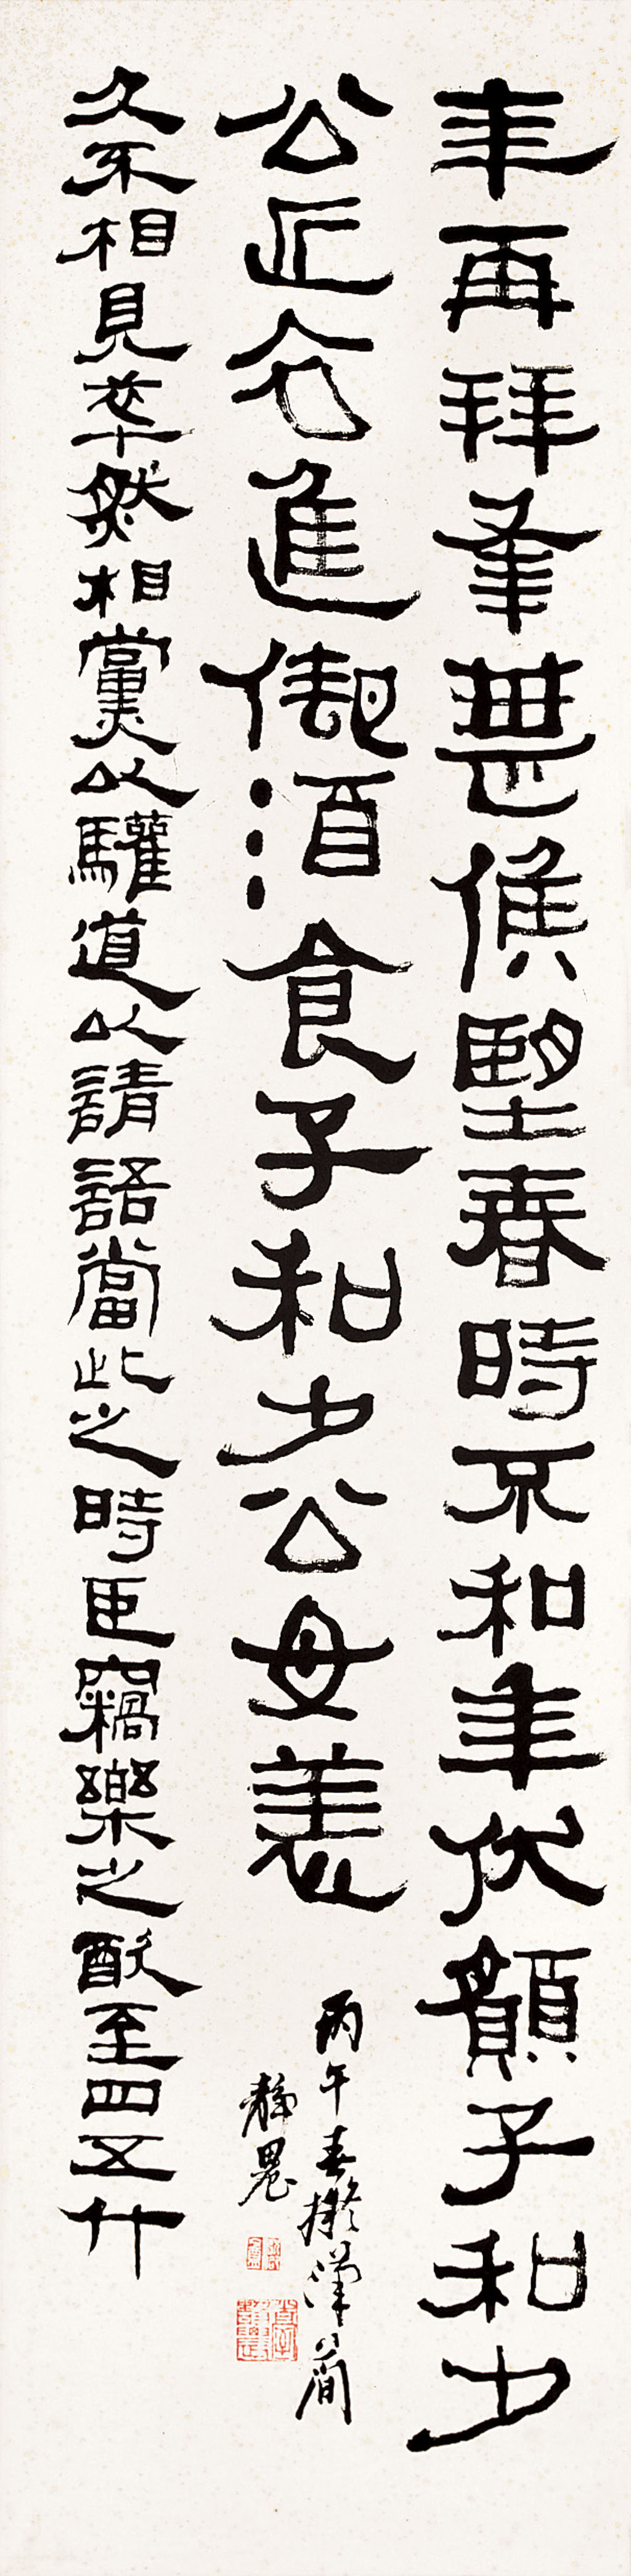 丰再拜甚候望春時不和丰伏願子和少
公近衣進御酒食子和少公毋恙
丙午春擬漢簡
靜農
久不相見卒然相黨以驩道以請語當此之時臣竊樂之飲至四五什